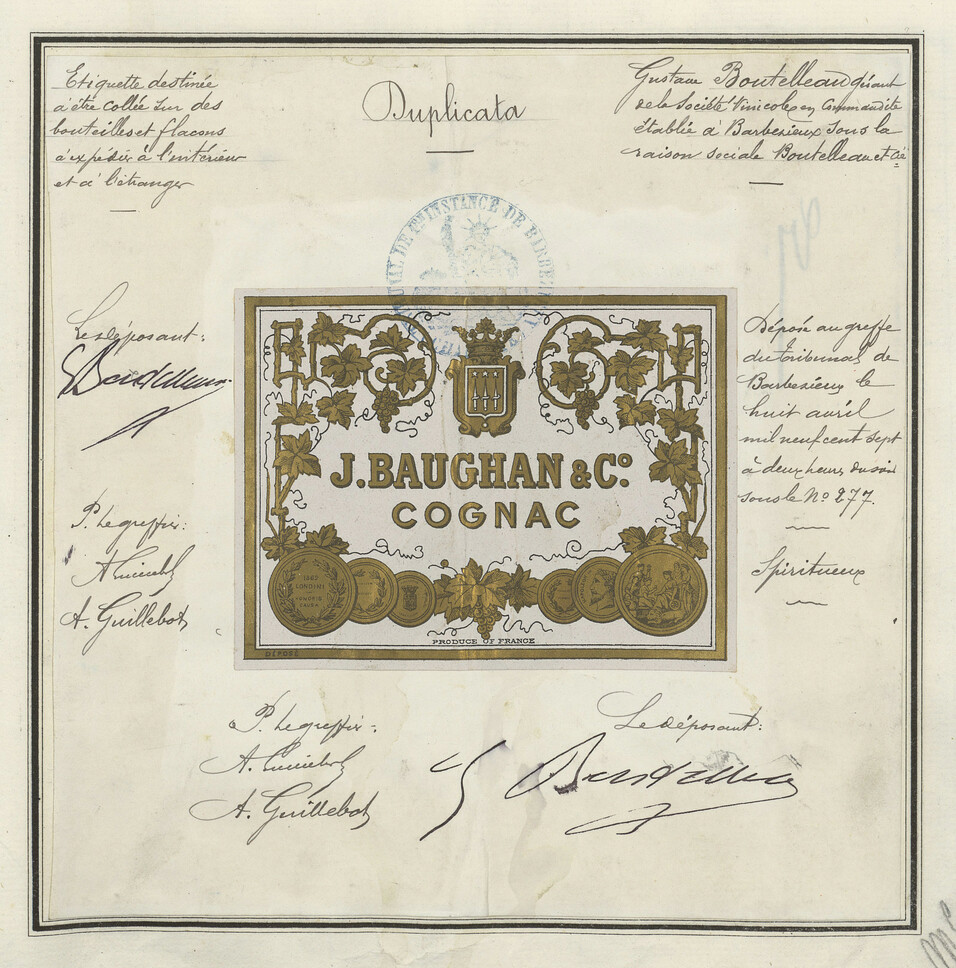 Duplicata
Etiquette destinée
à être collée sur des
bouteilles et flacons
à expédier à l'intérieur
et à l'étranger
Gustave Boutelleau gérant
de la Société Vinicole en Commandite
établie à Barbezieux sous la
raison sociale Boutelleau et Cie
TRIBUNAL DE 1re INSTANCE DE BARBEZIEUX
Le déposant:
J. BAUGHAN & Co.
COGNAC
PRODUCE OF FRANCE
DÉPOSÉ
Déposé au greffe
du tribunal de
Barbezieux le
huit avril
mil neuf cent sept
à deux heures du soir
sous le No 277.
Spiritueux
P. le greffier:
A. Guillebot
A. Guillebot
P. le greffier:
A. Guillebot
A. Guillebot
Le déposant:
Boutelleau